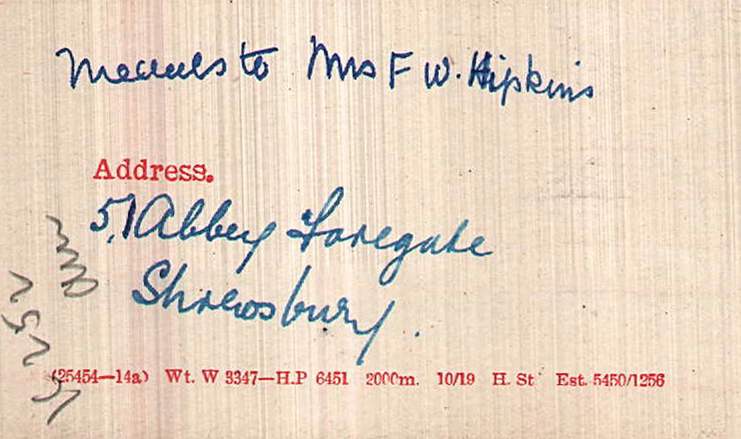 Medals to Mrs F W. Hipkins
Address.
51 Abbey Foregate
Shrewsbury.
(25454—14a) Wt. W 3347—H.P 6451 2000m. 10/19 H. St Est. 5450/1256